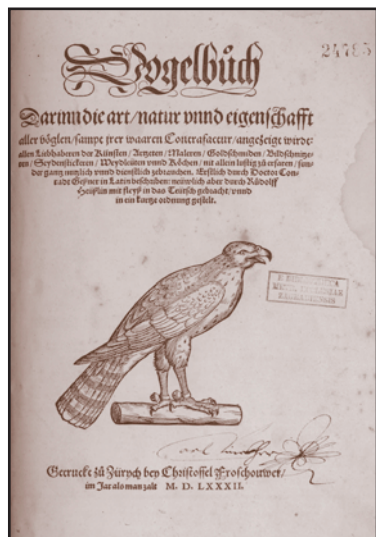 24785
Vogelbůch
Darinn die art/natur vnnd eigenschafft
aller vöglen/sampt jrer waaren Contrafactur/angezeigt wirdt:
allen Liebhaberen der Künsten/Artzaten/Maleren/Goldschmiden/Bildschnitze-
ren/Seydenstickeren/Weydleüten vnnd Köchen/nit allein lustig zů erfaren/sun-
der gantz nutzlich vnnd dienstlich zebrauchen. Erstlich durch Doctor Con-
radt Geßner in Latin beschriben: neüwlich aber durch Růdolff
Heüßlin mit fleyß in das Teütsch gebracht/vnnd
in ein kurtze ordnung gestelt.
Getruckt zů Zürych bey Christoffel Froschouwer/
im Jar als man zalt M. D. LXXXII.